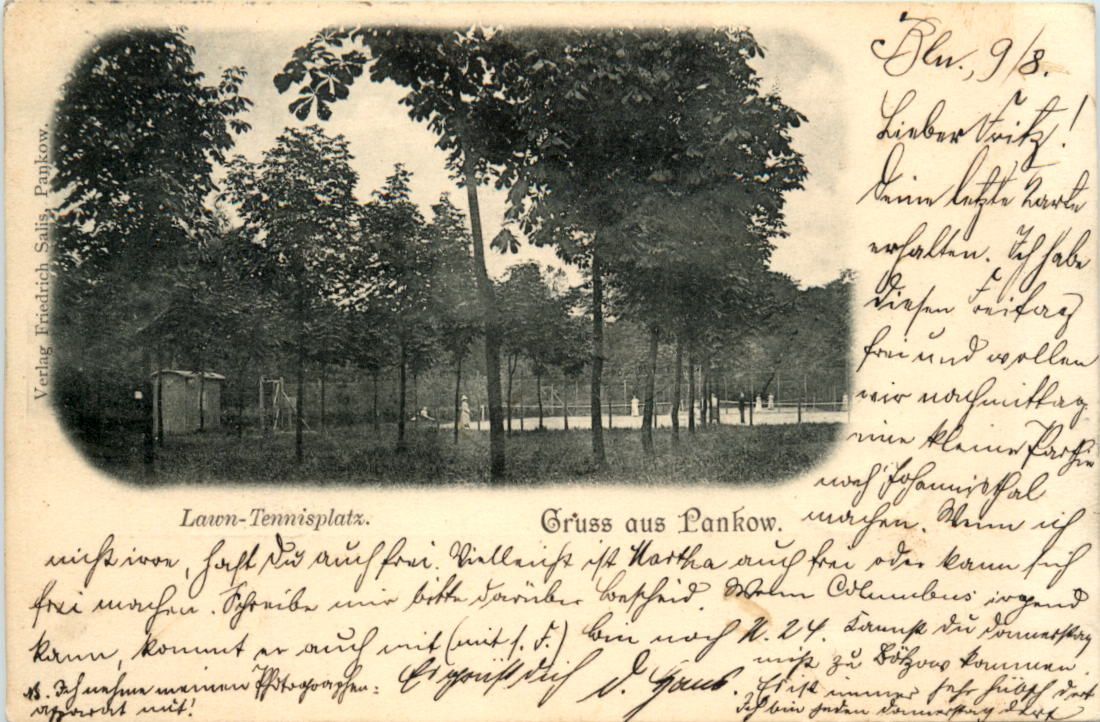 Verlag Friedrich Salis, Pankow.
Lawn-Tennisplatz.
Gruss aus Pankow.
Bln., 9/8.
Lieber Fritz!
Deine letzte Karte
erhalten. Ich habe
diesen Freitag
frei und wollen
wir nachmittag
eine kleine Parthie
nach Johannisthal
machen. Wenn ich
nicht irre, hast Du auch frei. Vielleicht ist Martha auch frei oder kann sich
frei machen. Schreibe mir bitte darüber Bescheid. Wenn Columbus irgend
kann, kommt er auch mit (mit s. F.) bin noch N. 24. Kannst Du Donnerstag
nicht zu Bötzow kommen.
Es ist immer sehr hübsch dort
Ich bin jeden Donnerstag dort
Es grüßt Dich D. Hans.
NB. Ich nehme meinen Photographen-
apparat mit!